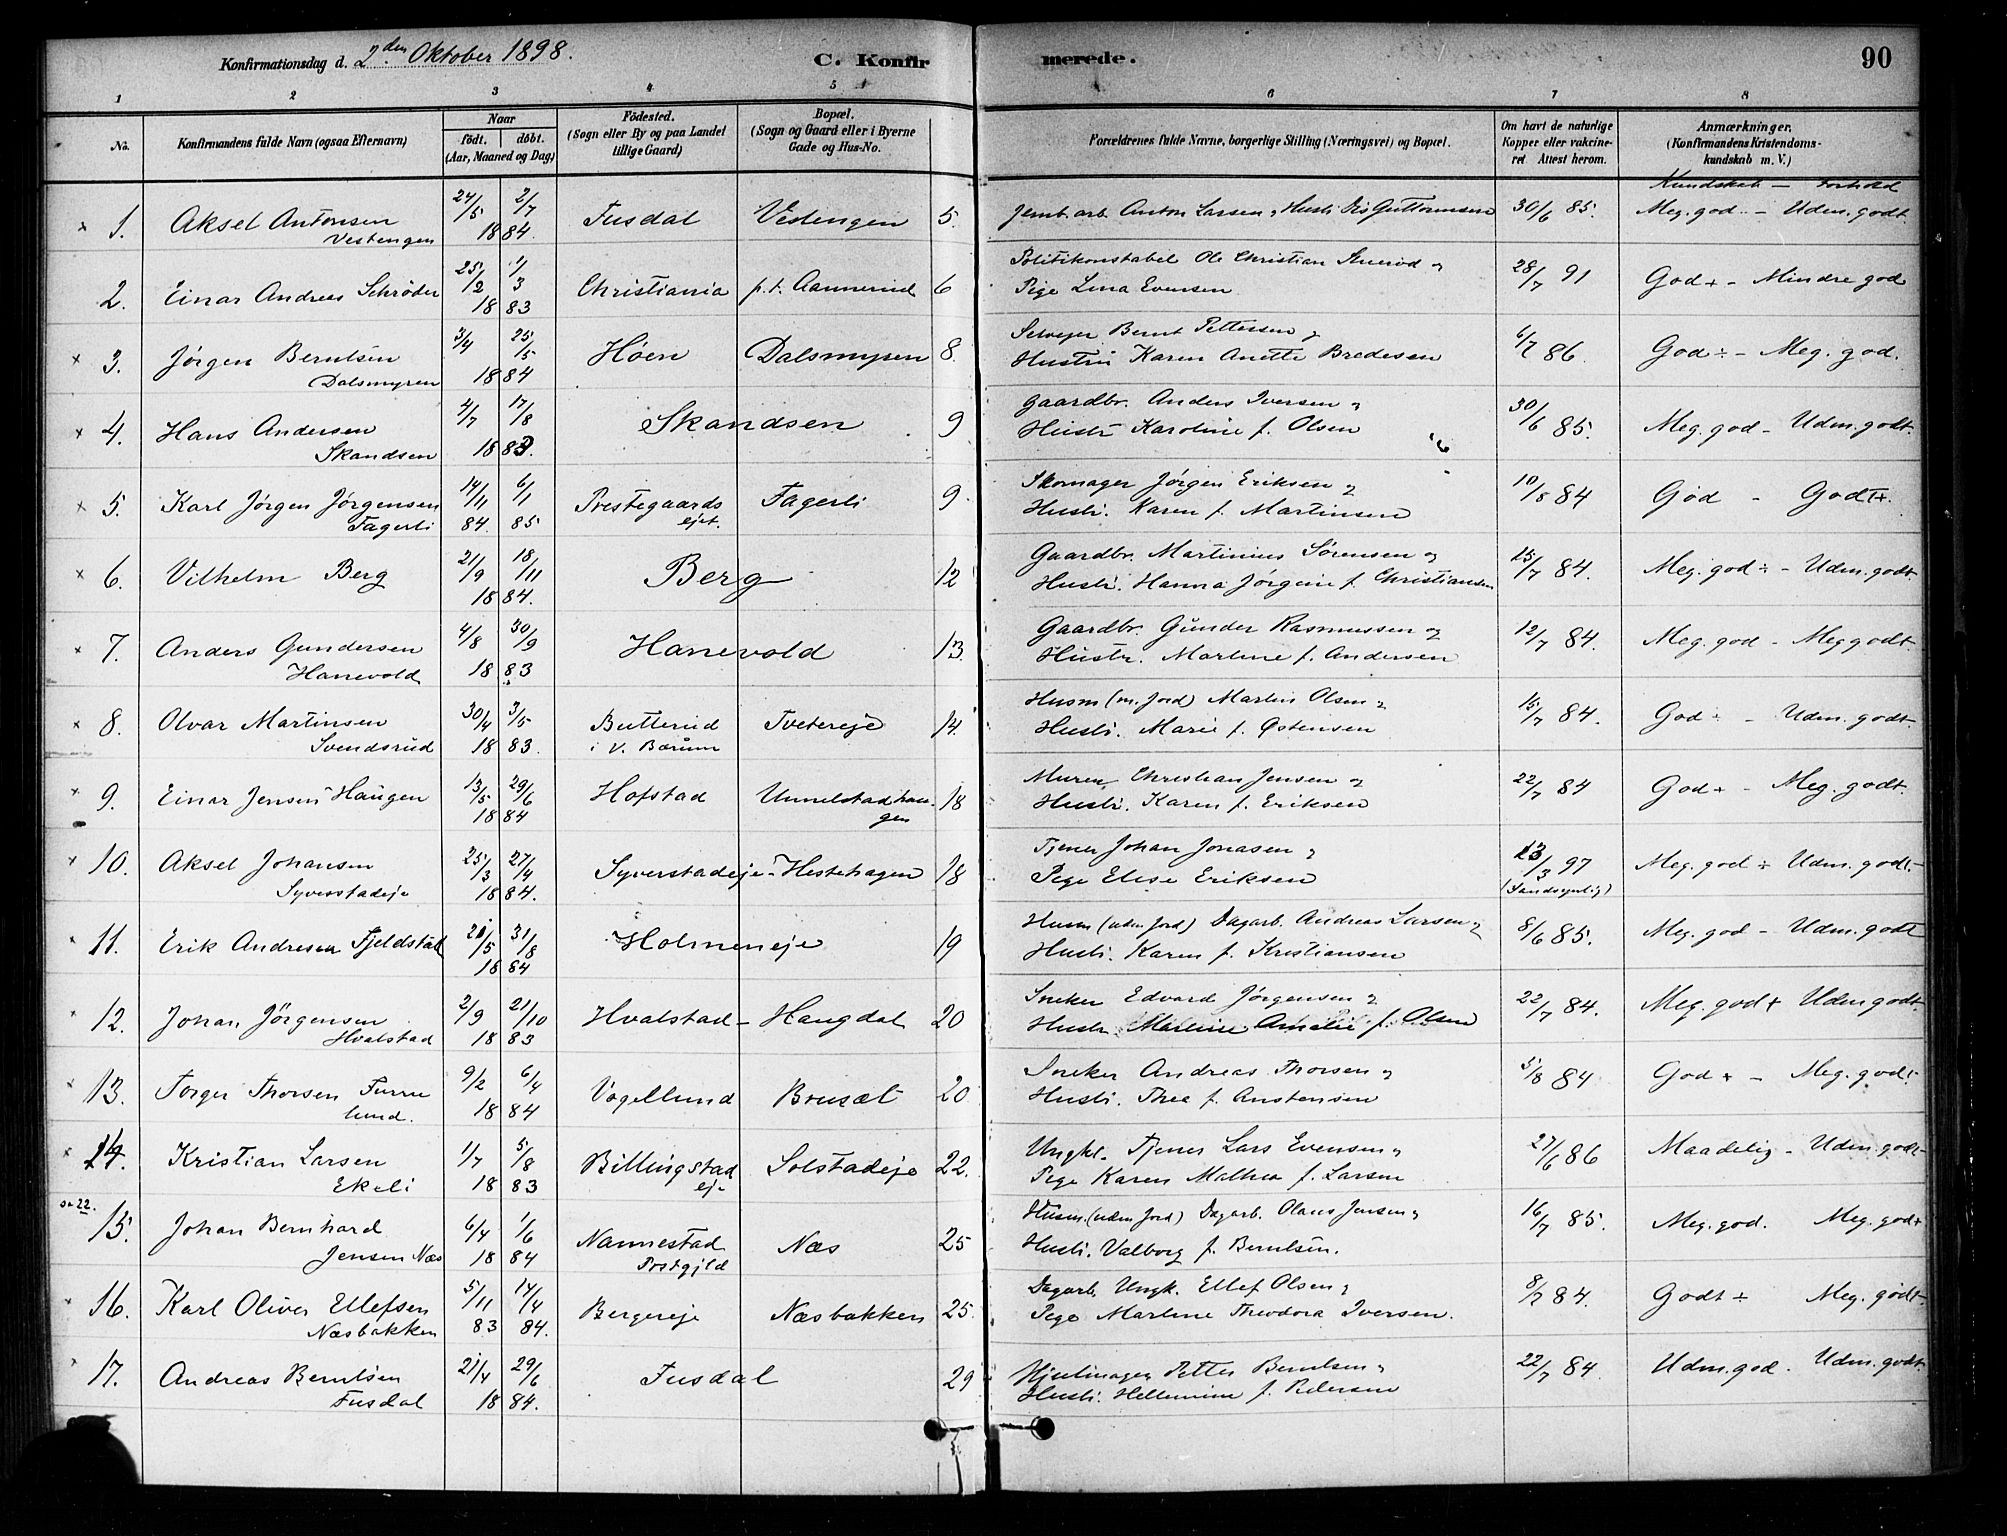 Konfirmationsdag d. 2den Oktober 1898. C. Konfirmerede. 90
1 2 3 4 5 6 7 8
No. Konfirmandens fulde Navn (ogsaa Efternavn) Naar født. døbt. (Aar, Maaned og Dag) Fødested. (Sogn eller By og paa Landet tillige Gaard) Bopæl. (Sogn og Gaard eller i Byerne Gade og Hus-No. Forældrenes fulde Navne, borgerlige Stilling (Næringsvei) og Bopæl. Om havt de naturlige Kopper eller vakcineret Attest herom. Anmærkninger. (Konfirmandens Kristendomskundskab m. V.)
Kundskab — Forhold
1. Aksel Antonsen 24/5 2/7 Fusdal Vestengen 5. Jernb. arb. Anton Larsen, Hustr. Guttormsen 30/6 85. Meg. god. - Udm. godt
Vestengen 18 84.
2. Einar Andreas Schrøder 25/12 1/3 Christiania p.t. Aannerud 6 Politikonstabel Ole Christian og 28/7 91 God + - Mindre god
18 83 Pige Lina Evensen
3. Jørgen Berntsen 3/4 25/5 Høen Dalsmyren 8. Selveier Bernt Pettersen, 6/7 86. God ÷ - Meg. god.
Dalsmyren 18 84 Hustru Karen Anette Bredesen
4. Hans Andersen 4/7 17/8 Skandsen 9 Gaardbr. Anders Iversen, 30/6 85. Meg. god - Udm. godt.
Skandsen 18 83. Hustr Karoline f. Olsen
5. Karl Jørgen Jørgensen 14/11 6/1 Prestegaards Fagerli 9. Skomager Jørgen Eriksen, 10/8 84 God - Godt+.
Fagerli 84. 85 ejet. Hustr. Karen f. Martinsen
6. Vilhelm Berg 21/9 18/11 Berg 12 Gaardbr. Martinius Sørensen og 15/7 84. Meg. god ÷ - Udm. godt
18 84. Hustr. Hanna Jørgine f. Christiansen
7. Anders Gundersen 4/8 30/9 Hanevold 13. Gaardbr. Gunder Rasmussen og 12/7 84. Meg. god - Meg godt.
Hanevold 18 83 Hustr. Martine f. Andersen
8. Olvar Martinsen 30/4 3/5 Butterud Tvetereje 14. Husm (m. jord) Martin Olsen, 15/7 84. God ÷ - Udm. godt.
Svendsrud 18 83. i V. Bærum Hustr. Marie f. Østensen
9. Einar Jensen Haugen 13/5 29/6 Hofstad Unnelstadhau- 18 Murer Christian Jensen og 22/7 84 God + - Meg. godt.
18 84 gen Hustr. Karen f. Eriksen
10. Aksel Johansen 25/3 27/4 Syverstadeje - Hestehagen 18 Tjener Johan Jonasen, 13/3 97 Meg. god ÷ Udm. godt.
Syverstadeje 18 84. Pige Elise Eriksen (Sandsynlig)
11. Erik Andresen Fjeldstad 21/5 31/8 Holmeneje 19 Husm (uden jord) Dagarb. Andreas Larsen, 8/6 85. Meg. god - Udm. godt
18 84 Hustr. Karen f. Kristiansen
12. Johan Jørgensen 2/9 21/10 Hvalstad - Haugdal 20 Sneker Edvard Jørgensen, 22/7 84. Meg. god + Udm godt.
Hvalstad 18 83 Hustr. Martine Amalie f. Olsen
13. Torger Thorsen Furru 9/2 6/4 Vogellund Brusæt 20. Sneker Andreas Thorsen, 5/8 84 God + - Meg. godt.
lund. 18 84 Hustr. Thea f. Anstensen
14. Kristian Larsen 1/7 5/8 Billingstad Solstadeje 22. Ungkl. Tjener Lars Evensen, 27/6 86 Maadelig - Udm. godt
Ekeli 18 83 eje Pige Karen Mathea f. Larsen
15. Johan Bernhard 6/4 1/6 Nannestad Næs 25 Husm. (uden jord) Dagarb. Olaus Jensen, 16/7 85. Meg. god. Meg. godt
Jensen Næs 18 84 Prstgjld Hustr. Valborg f. Berntsen.
16. Karl Oliver Ellefsen 5/11 14/4 Bergereje Næsbakken 25. Dagarb. Ungk. Ellef Olsen, 8/7 84. Godt ÷ Meg. godt.
Næsbakken 83 84. Pige Martine Theodora Iversen.
17. Andreas Berntsen 21/4 29/6 Fusdal 29 Hjulmager Petter Berntsen, 22/7 84. Udm. god. Udm. godt.
Fusdal 18 84. Hustr. Hellemine f. Pedersen